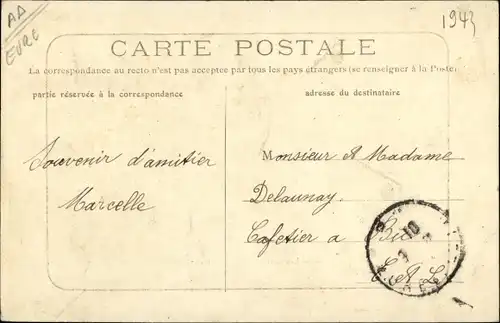 AD
EURE
1943
CARTE POSTALE
La correspondance au recto n'est pas acceptée par tous les pays étrangers (se renseigner à la Poste)
partie réservée à la correspondance
adresse du destinataire
Souvenir d'amitier
Marcelle
Monsieur et Madame
Delaunay
Cafetier a
E. & L.